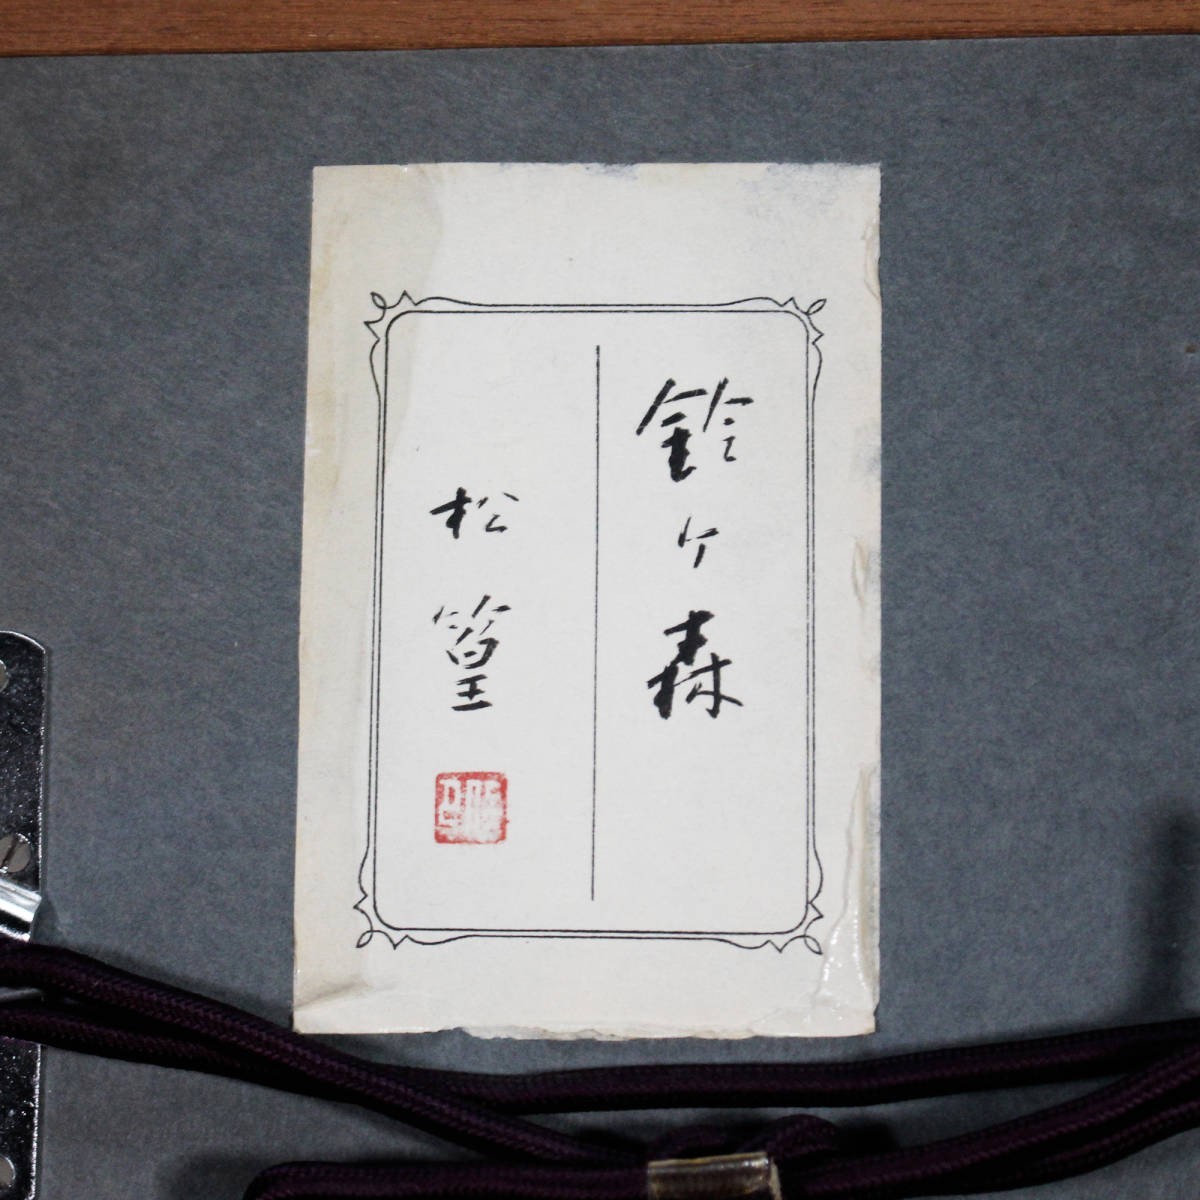 鈴ヶ森
松篁